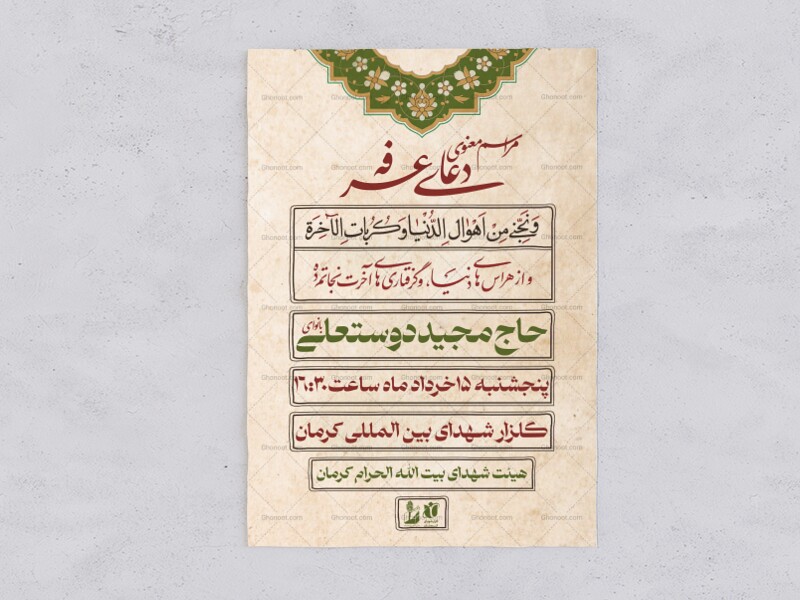 مراسم معنوی
دعای عرفه
وَنَجِّنی مِنْ اَهْوالِ الدُّنْیا وَكُرُباتِ الآخِرَة
و از هراس های دنیا، و گرفتاری های آخرت نجاتم ده
بانوای
حاج مجید دوستعلی
پنجشنبه ۱۵ خرداد ماه ساعت ۱۶:۳۰
گلزار شهدای بین المللی کرمان
هیئت شهدای بیت الله الحرام کرمان
Ghonoot.com